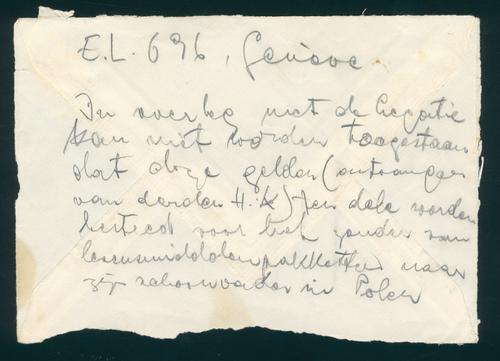 E.L. 696, Genève
In overleg met de Legatie
kan niet worden toegestaan
dat deze gelden (ontvangen
van derden H.K) ten dele worden
besteed voor het zenden van
levensmiddelenpakketten naar
zijn schoonvader in Polen